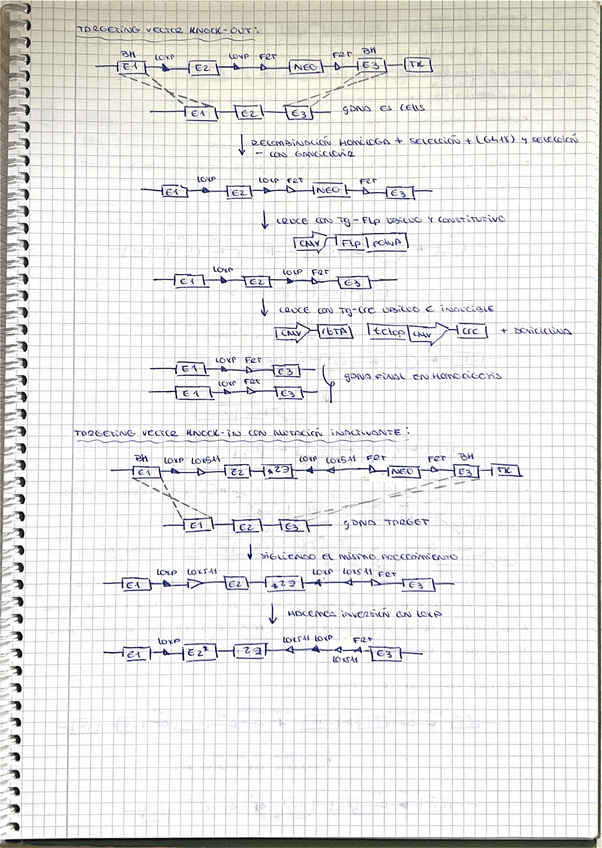 TARGETING VECTOR KNOCK-OUT:
BH loxP loxP FRT FRT BH
E1 E2 NEO E3 TK
E1 E2 E3 gDNA ES CELLS
RECOMBINACIÓN HOMÓLOGA + SELECCIÓN + (G418) y SELECCIÓN
- CON GANCICLOVIR
loxP loxP FRT FRT
E1 E2 NEO E3
CRUCE CON Tg-Flp UBICUO Y CONSTITUTIVO
CMV Flp polyA
loxP loxP FRT
E1 E2 E3
CRUCE CON Tg-CRE UBICUO E INDUCIBLE
CMV rtTA tetop CMV CRE + DOXICICLINA
loxP FRT
E1 E3
loxP FRT
E1 E3
gDNA FINAL EN HOMOCIGOSIS
TARGETING VECTOR KNOCK-IN CON MUTACIÓN INACTIVANTE:
BH loxP lox511 loxP lox511 FRT FRT BH
E1 E2 *2Ǝ NEO E3 TK
E1 E2 E3 gDNA TARGET
SIGUIENDO EL MISMO PROCEDIMIENTO
loxP lox511 loxP lox511 FRT
E1 E2 *2Ǝ E3
HACEMOS INVERSIÓN EN loxP
loxP lox511 loxP FRT
lox511
E1 E2* 2Ǝ E3